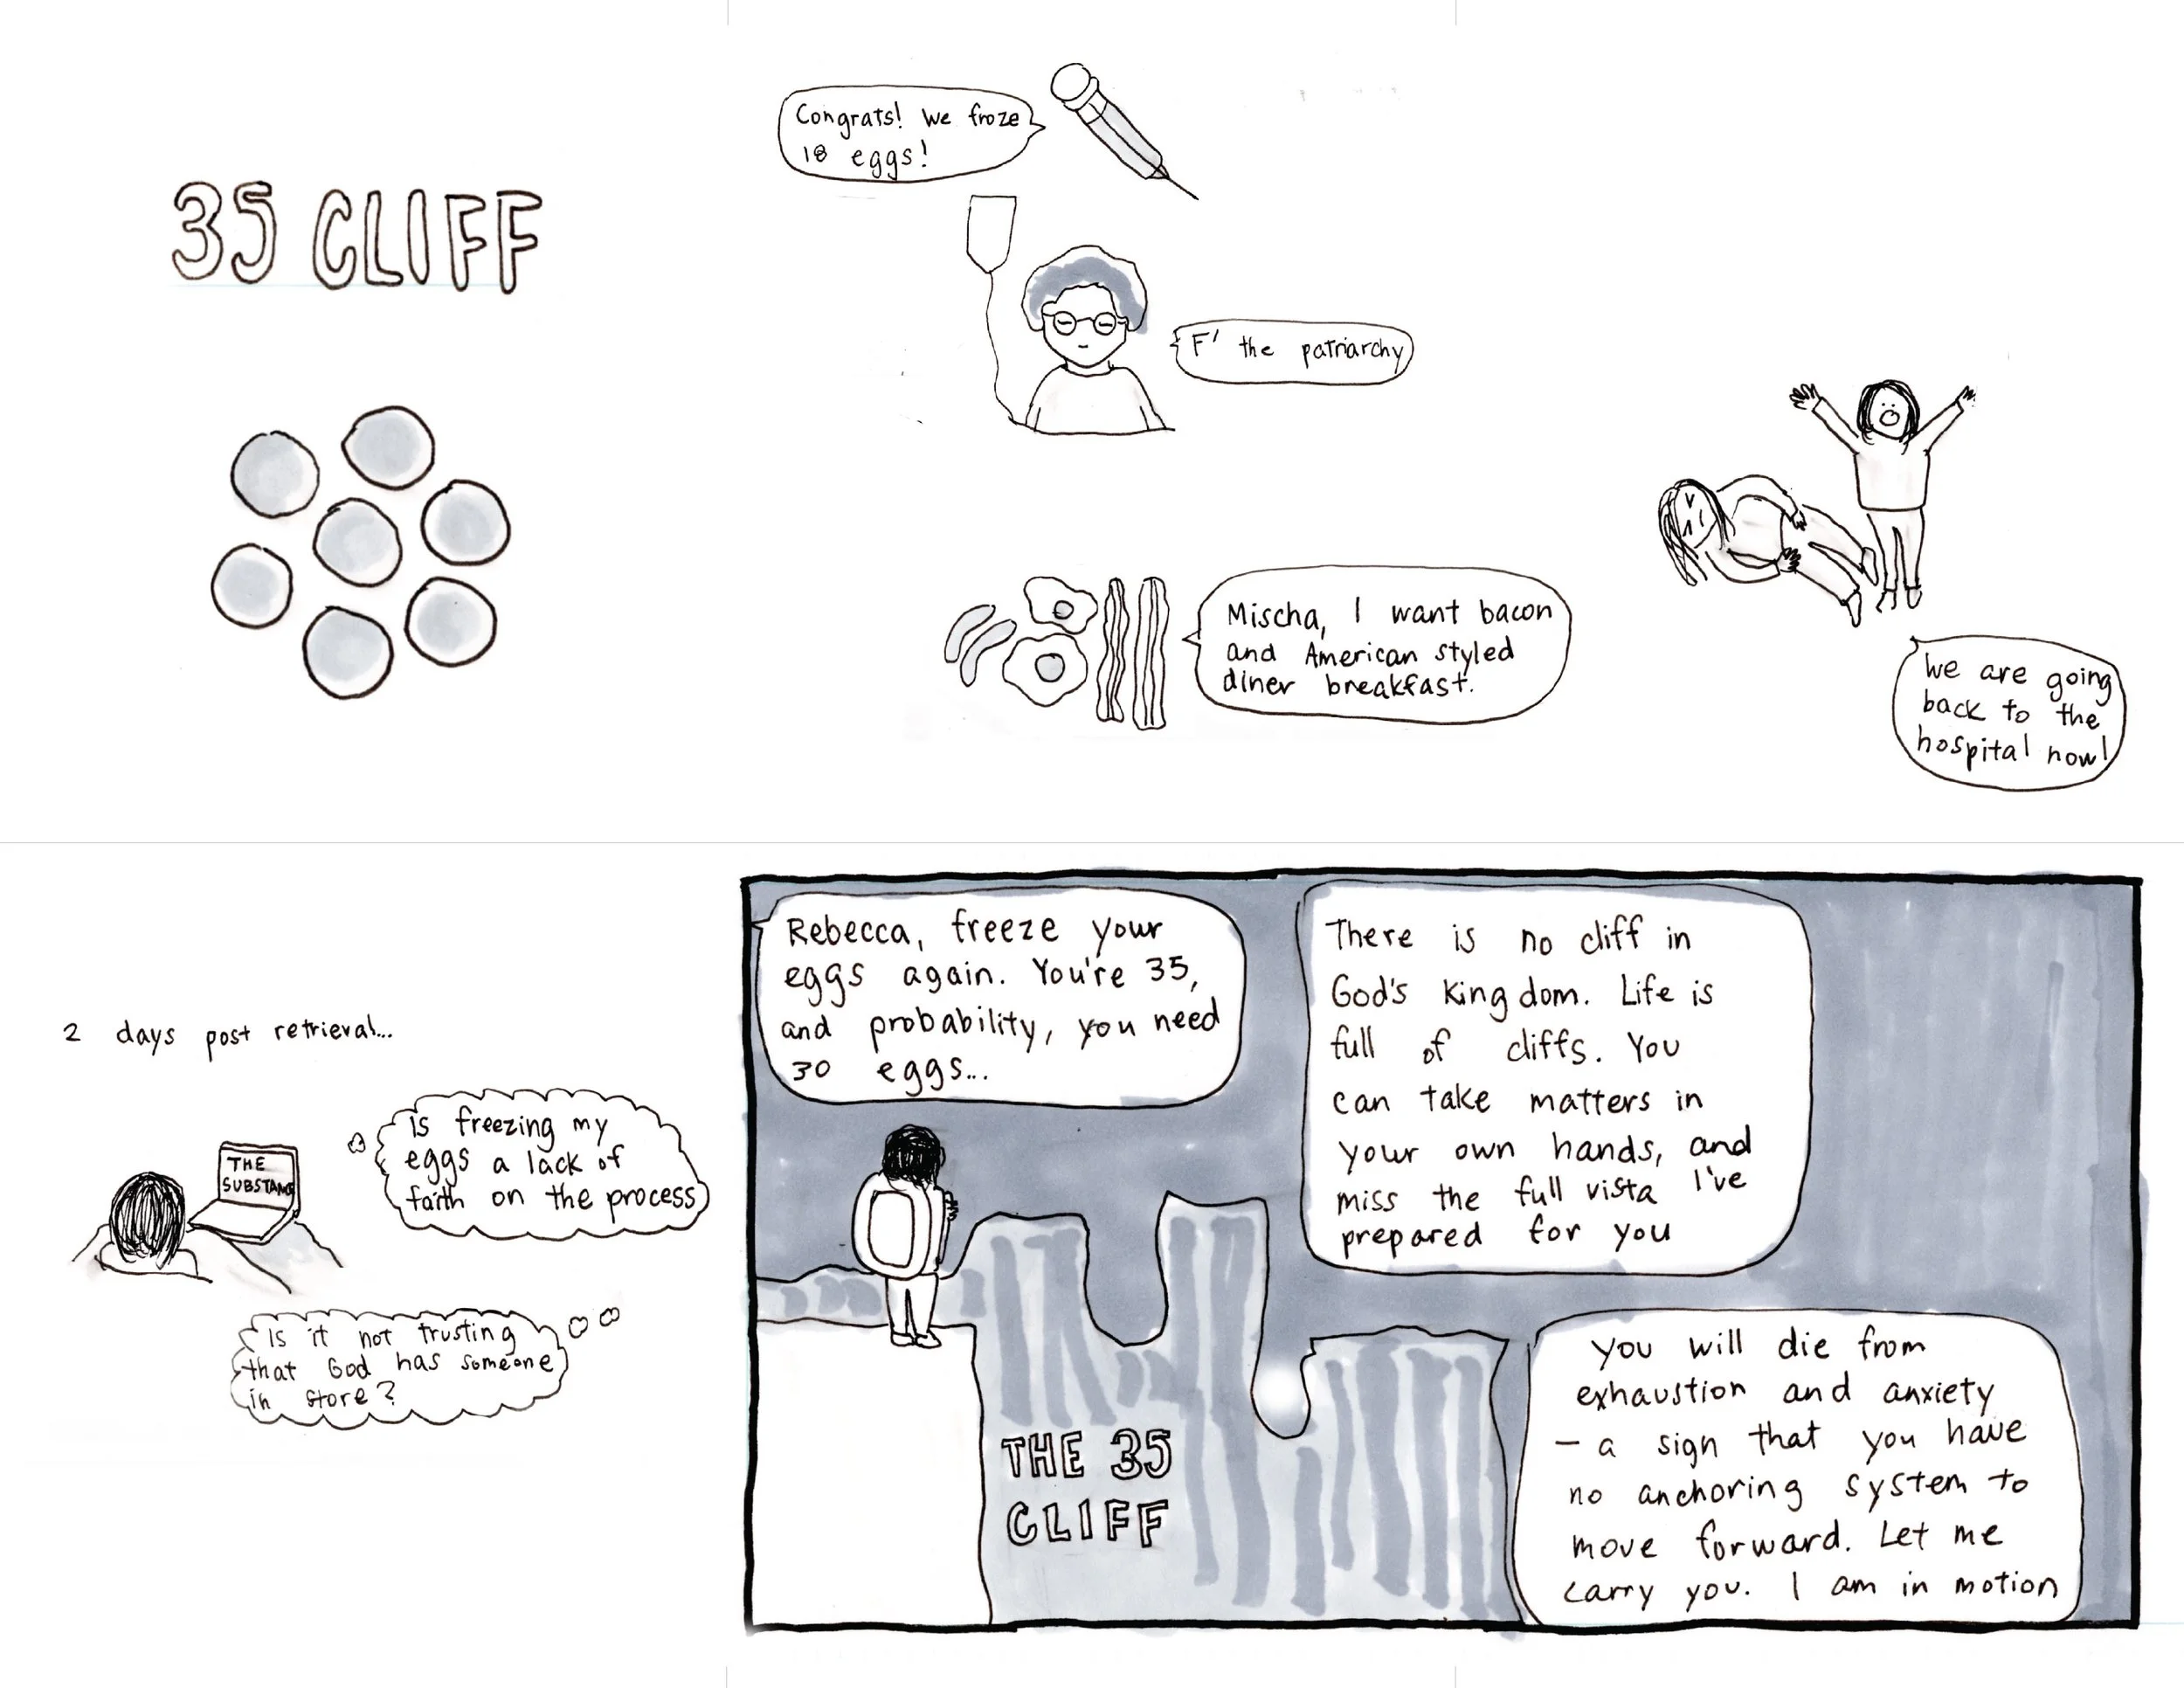 35 CLIFF
Congrats! We froze
18 eggs!
F' the patriarchy
Mischa, I want bacon
and American styled
diner breakfast.
We are going
back to the
hospital now!
2 days post retrieval...
THE
SUBSTANC
is freezing my
eggs a lack of
faith on the process
Is it not trusting
that God has someone
in store?
Rebecca, freeze your
eggs again. You're 35,
and probability, you need
30 eggs...
There is no cliff in
God's Kingdom. Life is
full of cliffs. You
can take matters in
your own hands, and
miss the full vista I've
prepared for you
THE 35
CLIFF
You will die from
exhaustion and anxiety
— a sign that you have
no anchoring system to
move forward. Let me
carry you. I am in motion